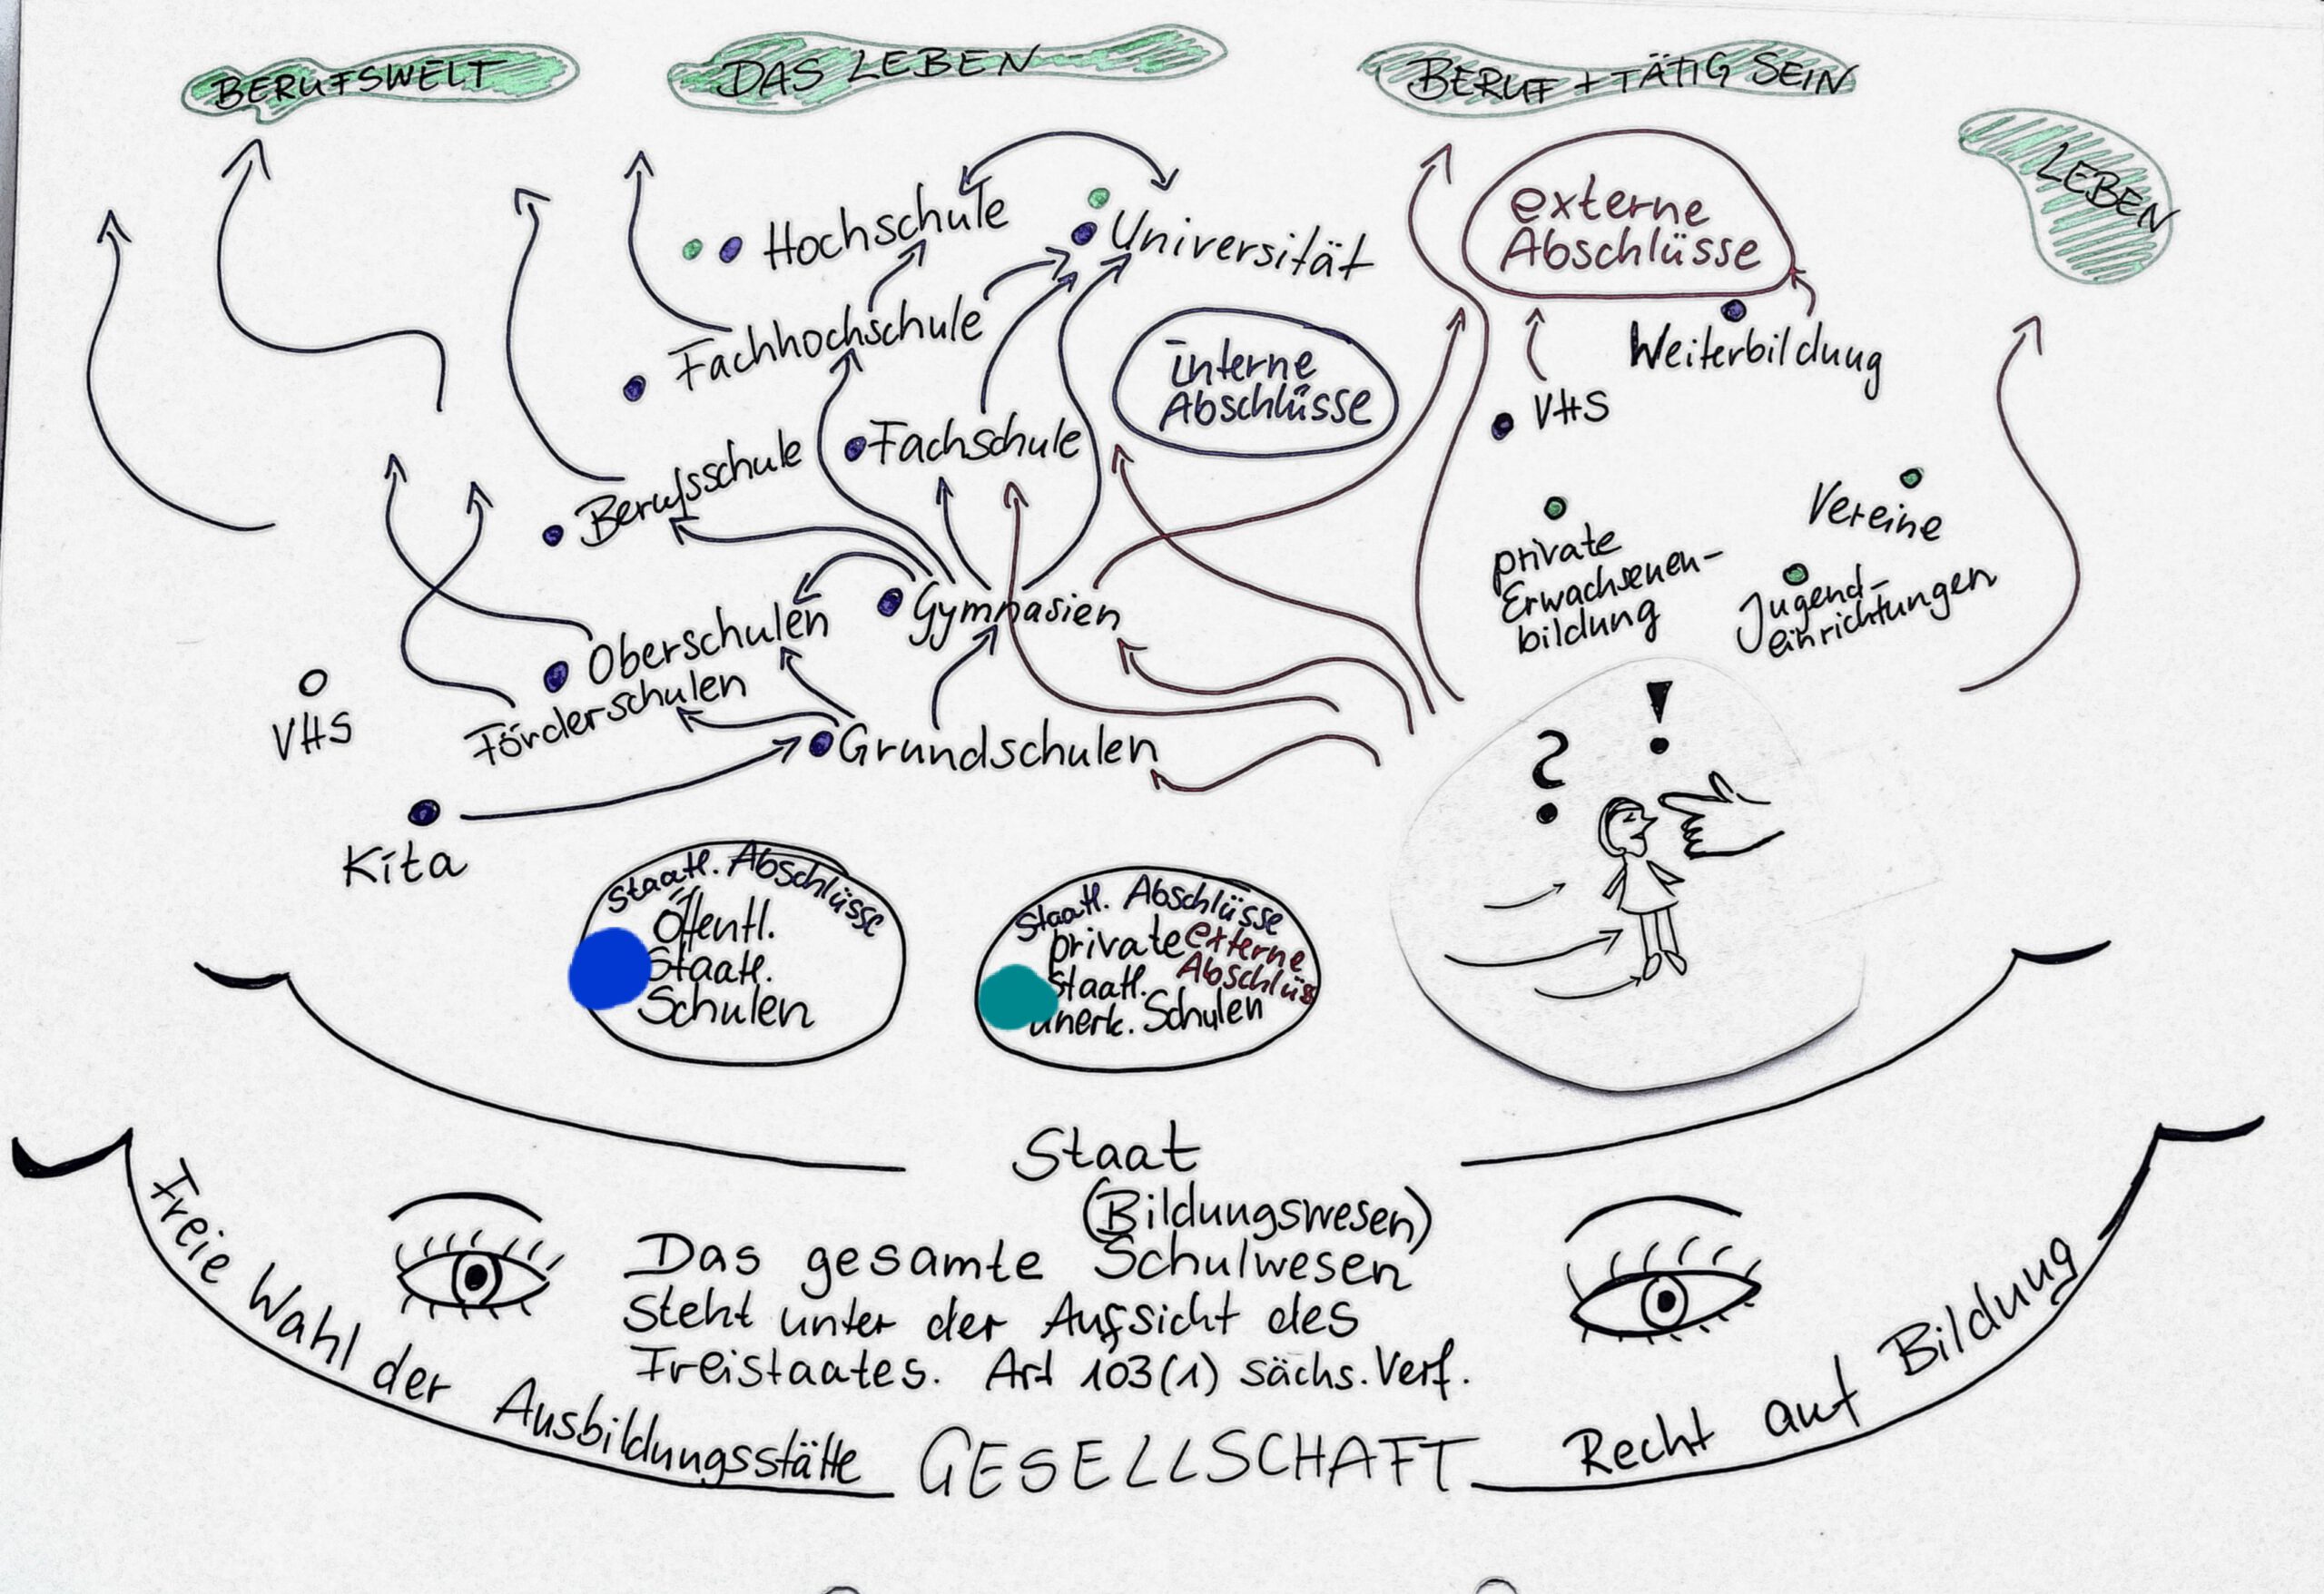 BERUFSWELT
DAS LEBEN
BERUF + TÄTIG SEIN
LEBEN
Hochschule
Universität
externe
Abschlüsse
Fachhochschule
interne
Abschlüsse
Weiterbildung
VHS
Fachschule
Berufsschule
Vereine
private
Erwachsenen-
bildung
Jugend-
einrichtungen
Gymnasien
Oberschulen
Förderschulen
VHS
Grundschulen
Kita
? !
Staatl. Abschlüsse
Öffentl.
Staatl.
Schulen
Staatl. Abschlüsse
private externe
Staatl. Abschlüs
anerk. Schulen
Staat
(Bildungswesen)
Das gesamte Schulwesen
steht unter der Aufsicht des
Freistaates. Art 103(1) sächs. Verf.
Freie Wahl der Ausbildungsstätte
GESELLSCHAFT
Recht auf Bildung